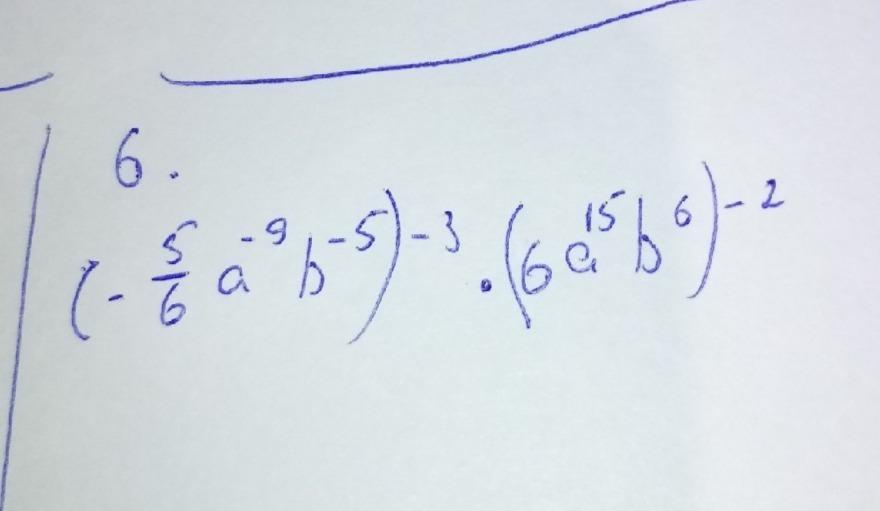 6.
(-5/6 a^-9 b^-5)^-3 . (6a^15 b^6)^-2